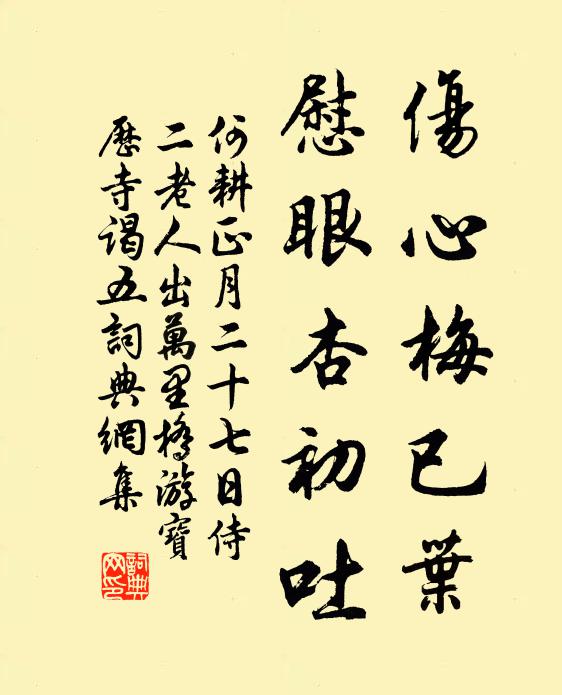 傷心梅已葉
慰眼杏初吐
何耕正月二十七日侍
二老人出萬里橋游寶
歷寺謁五詞典網集
詞典網印